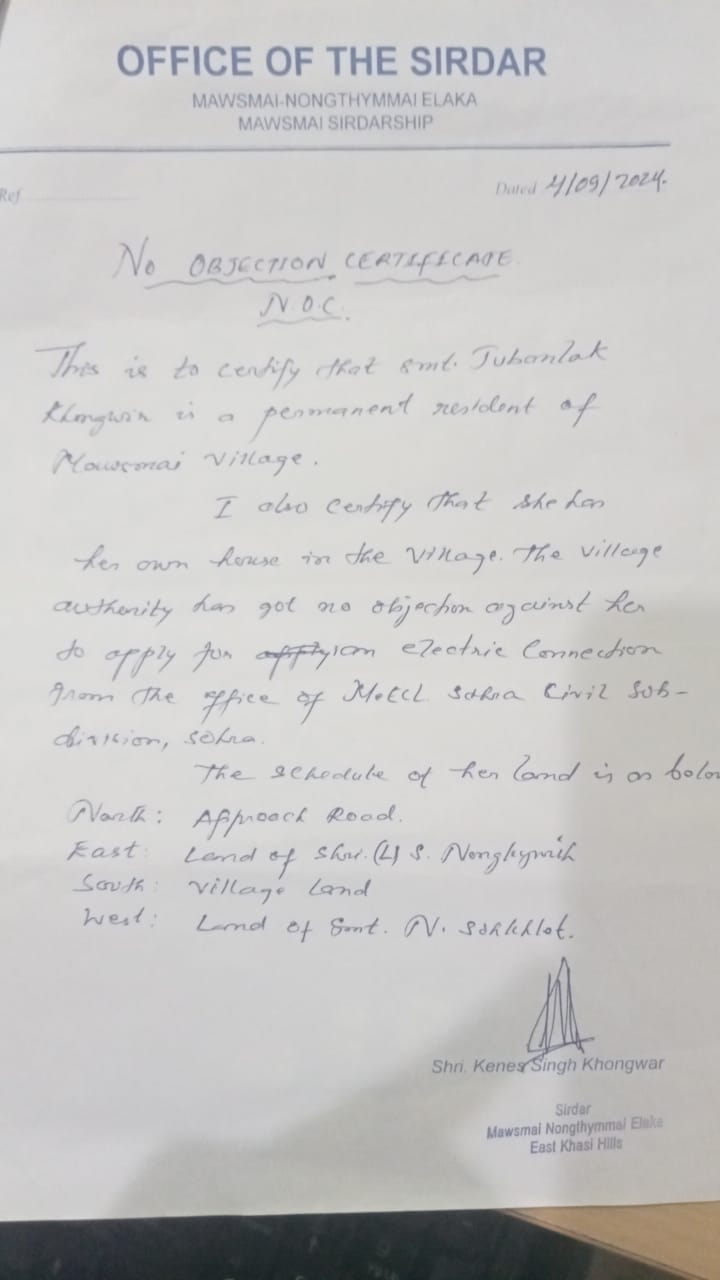 OFFICE OF THE SIRDAR
MAWSMAI-NONGTHYMMAI ELAKA
MAWSMAI SIRDARSHIP
Ref
Dated 4/09/2024.
No OBJECTION CERTIFICATE
N.O.C.
This is to certify that Smt. Jubanlak
Khongwir is a permanent resident of
Mawsmai Village.
I also certify that she has
her own house in the village. The village
authority has got no objection against her
to apply for an electric Connection
from the office of MeECL Sohra Civil Sub-
division, Sohra.
The schedule of her land is as below
North: Approach Road.
East: Land of Shri. (L) S.
South: Village Land
West: Land of Smt. N. Sohkhlet.
Shri. Kenes Singh Khongwar
Sirdar
Mawsmai Nongthymmai Elaka
East Khasi Hills